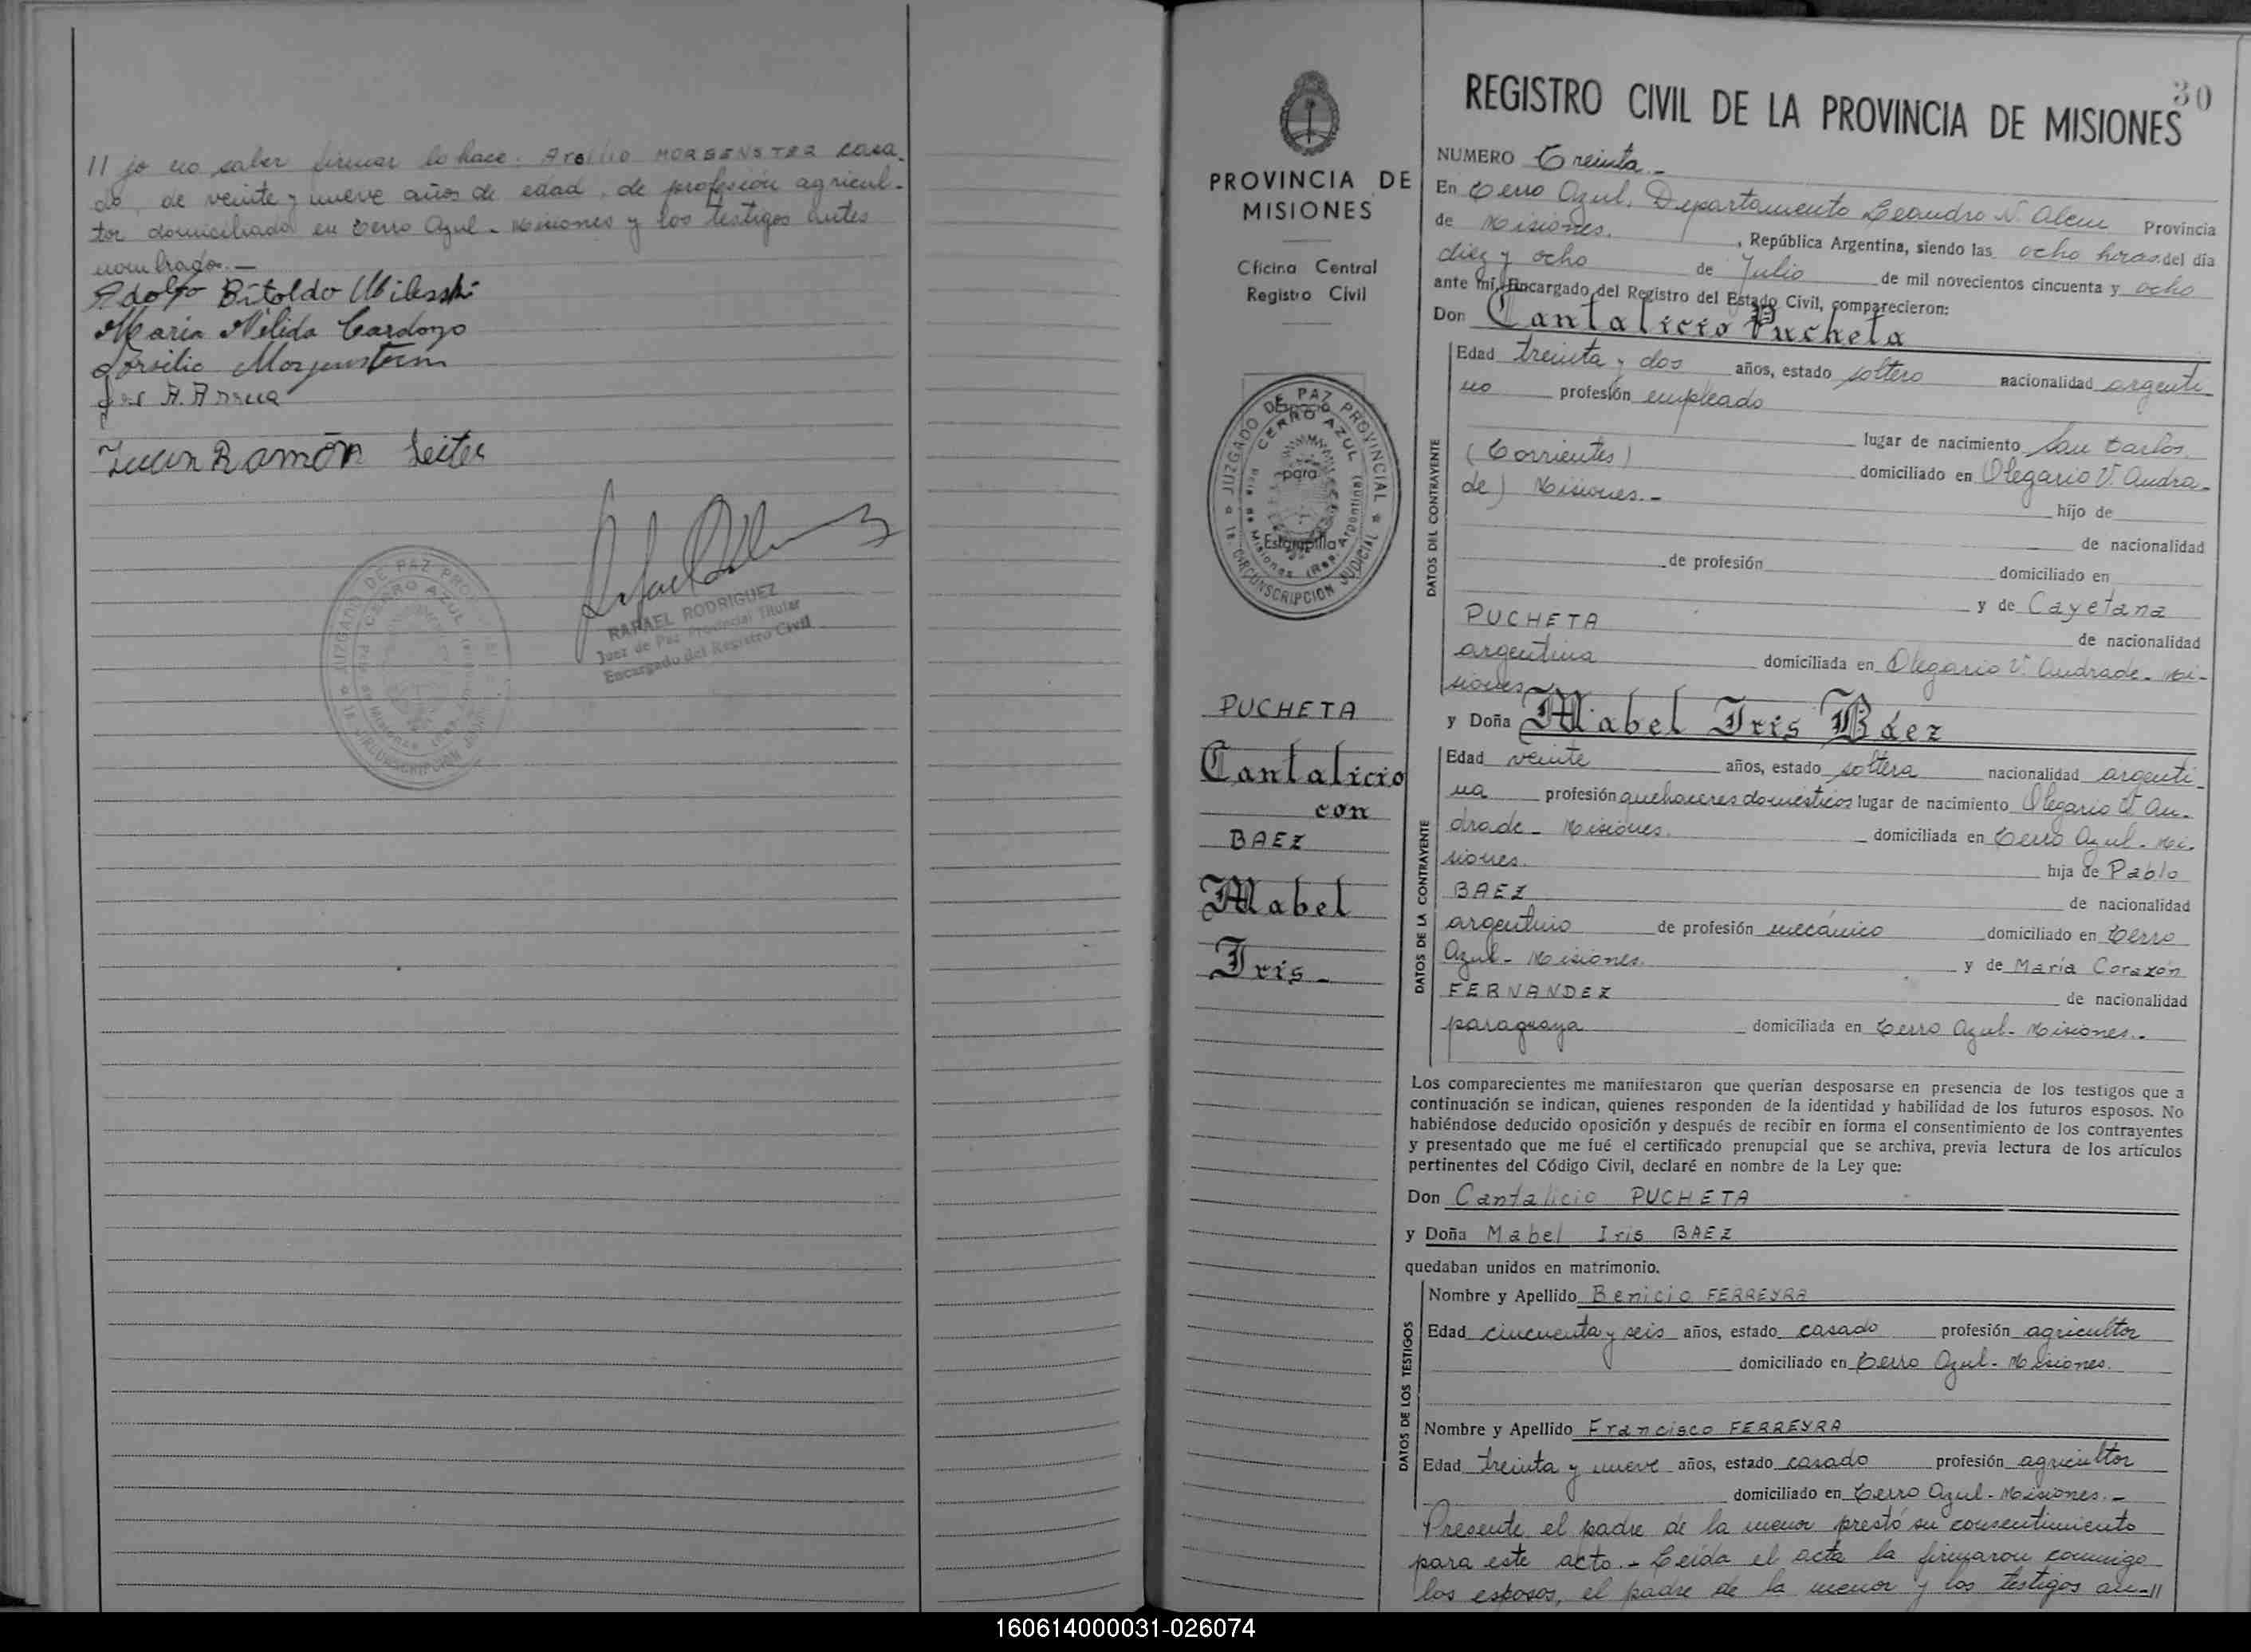 // jo no saber firmar lo hace: Arsilio MORGENSTER casa-
do, de veinte y nueve años de edad, de profesión agricul-
tor domiciliado en Cerro Azul - Misiones y los testigos antes
nombrados.—
Adolfo Bitoldo Milesski
María Nélida Cardozo
Arsilio Morgenstern
A. Arrua
Juan Ramón Leites
RAFAEL RODRIGUEZ
Juez de Paz Provincial Titular
Encargado del Registro Civil
JUZGADO DE PAZ PROVINCIAL
CERRO AZUL
1a. CIRCUNSCRIPCION JUDICIAL
PROVINCIA DE
MISIONES
Oficina Central
Registro Civil
JUZGADO DE PAZ PROVINCIAL
CERRO AZUL
Pcia. de Misiones (Rep. Argentina)
1a. CIRCUNSCRIPCION JUDICIAL
Espacio
para
Estampilla
PUCHETA
Cantalicio
con
BAEZ
Mabel
Iris.-
30
REGISTRO CIVIL DE LA PROVINCIA DE MISIONES
NUMERO Treinta.-
En Cerro Azul, Departamento Leandro N. Alem Provincia
de Misiones, República Argentina, siendo las ocho horas del día
diez y ocho de Julio de mil novecientos cincuenta y ocho
ante mí, Encargado del Registro del Estado Civil, comparecieron:
Don Cantalicio Pucheta
DATOS DEL CONTRAYENTE
Edad treinta y dos años, estado soltero nacionalidad argenti-
no profesión empleado
lugar de nacimiento San Carlos
(Corrientes) domiciliado en Olegario V. Andra-
de) Misiones.-
hijo de
de nacionalidad
de profesión domiciliado en
y de Cayetana
PUCHETA de nacionalidad
argentina domiciliada en Olegario V. Andrade - Mi-
siones
y Doña Mabel Iris Báez
DATOS DE LA CONTRAYENTE
Edad veinte años, estado soltera nacionalidad argenti-
na profesión quehaceres domésticos lugar de nacimiento Olegario V. An-
drade - Misiones. domiciliada en Cerro Azul - Mi-
siones. hija de Pablo
BAEZ de nacionalidad
argentino de profesión mecánico domiciliado en Cerro
Azul - Misiones. y de María Corazón
FERNANDEZ de nacionalidad
paraguaya domiciliada en Cerro Azul - Misiones.-
Los comparecientes me manifestaron que querían desposarse en presencia de los testigos que a
continuación se indican, quienes responden de la identidad y habilidad de los futuros esposos. No
habiéndose deducido oposición y después de recibir en forma el consentimiento de los contrayentes
y presentado que me fué el certificado prenupcial que se archiva, previa lectura de los artículos
pertinentes del Código Civil, declaré en nombre de la Ley que:
Don Cantalicio PUCHETA
y Doña Mabel Iris BAEZ
quedaban unidos en matrimonio.
DATOS DE LOS TESTIGOS
Nombre y Apellido Benicio FERREYRA
Edad cincuenta y seis años, estado casado profesión agricultor
domiciliado en Cerro Azul - Misiones.
Nombre y Apellido Francisco FERREYRA
Edad treinta y nueve años, estado casado profesión agricultor
domiciliado en Cerro Azul - Misiones.-
Presente el padre de la menor prestó su consentimiento
para este acto.- Leída el acta la firmaron conmigo
los esposos, el padre de la menor y los testigos an-//
160614000031-026074